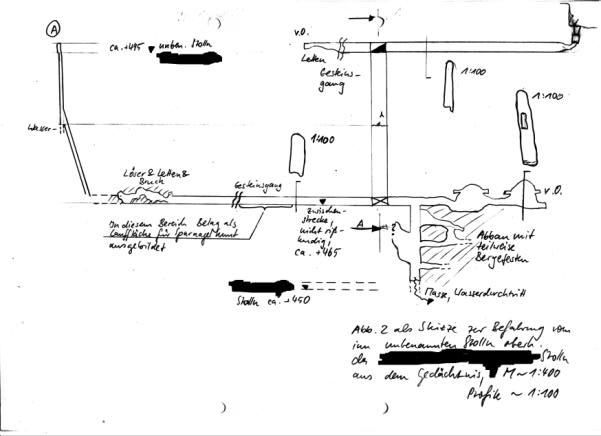 A
ca. +485 unben. Stolln
v.O.
Letten
Gesteins-
gang
1:100
1:100
Wasser
1:100
Löser & Letten &
Bruch
Gesteinsgang
v.O.
An diesem Bereich Belag als
Lauffläche für Sparnagelhunt
ausgebildet
Zwischen-
strecke,
nicht riß-
kundig,
ca. +465
A
Abbau mit
teilweise
Bergefesten
Stolln ca. +450
Nasse, Wasserdurchtritt
Abb. 2 als Skizze zur Befahrung vom
im unbenannten Stolln oberh.
des Stolln
aus dem Gedächtnis, M ~ 1:400
Profile ~ 1:100